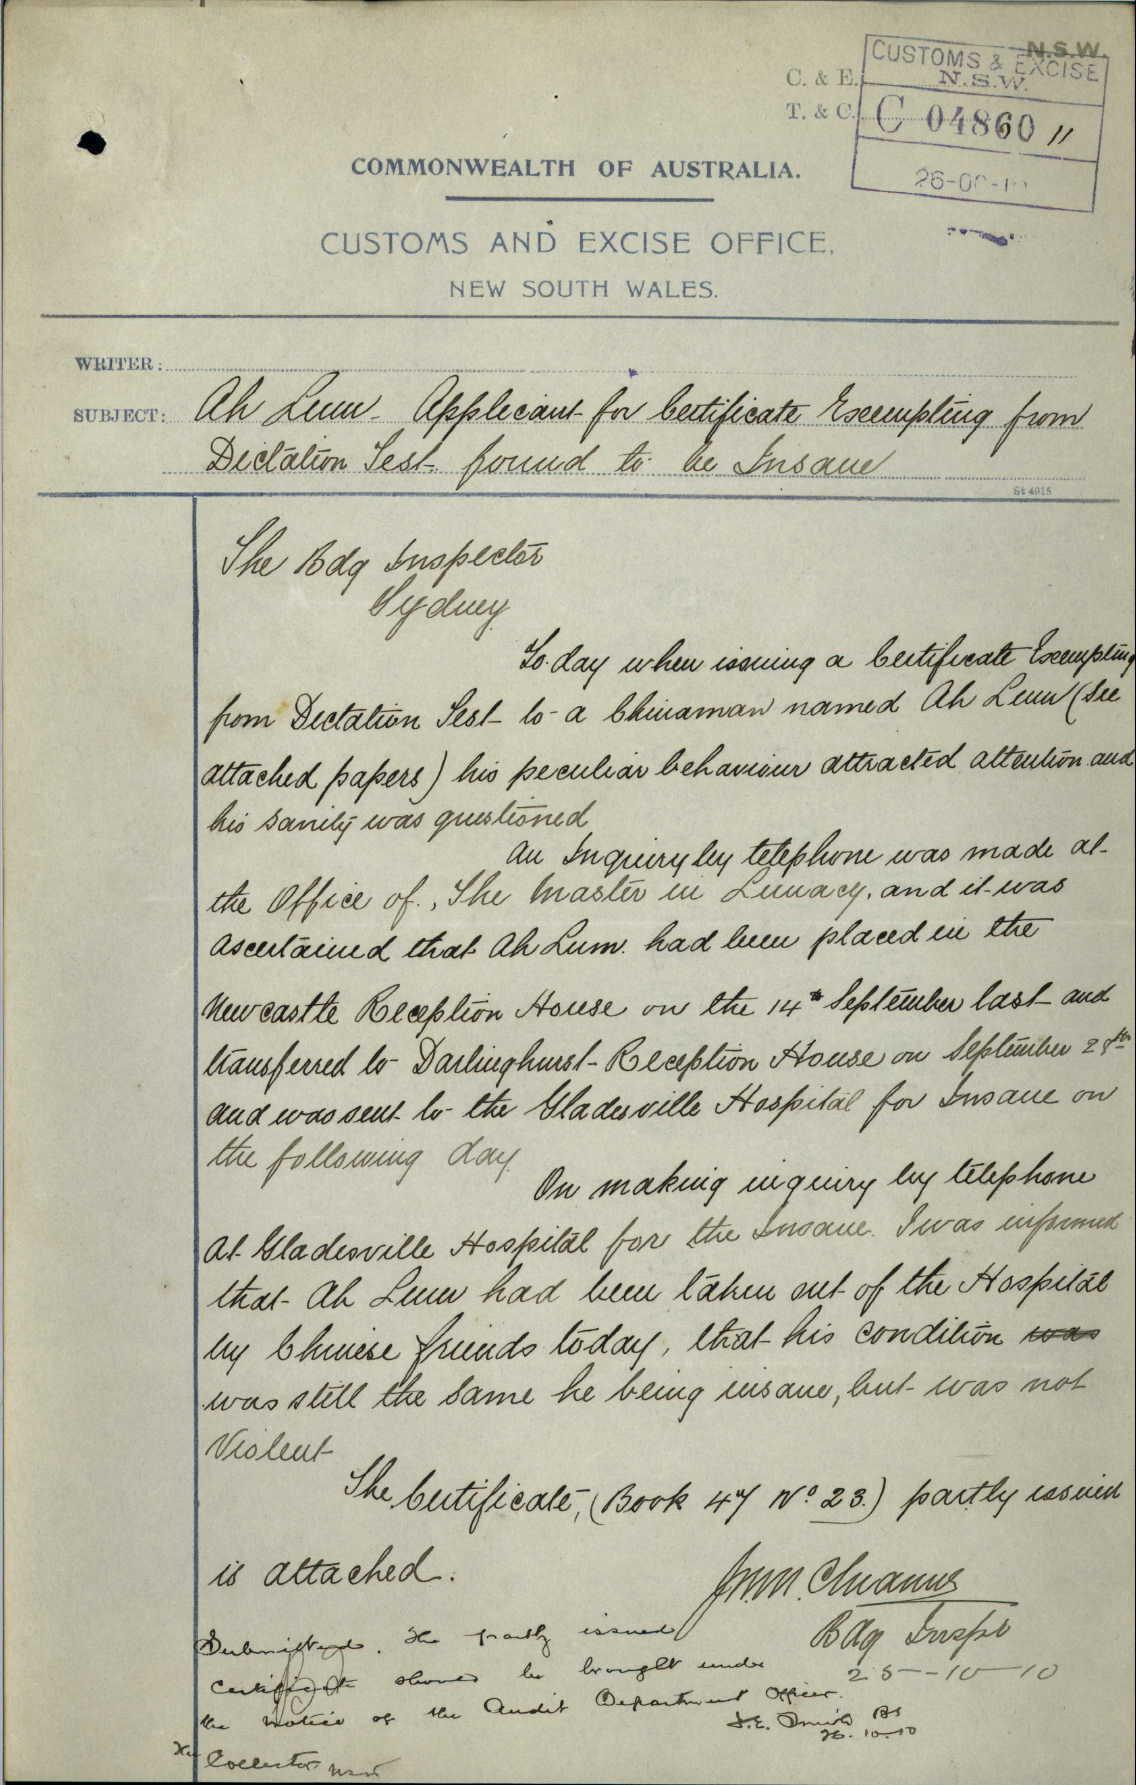 N.S.W.
CUSTOMS & EXCISE
N.S.W.
C. & E.
T. & C.
C 04860 11
COMMONWEALTH OF AUSTRALIA.
CUSTOMS AND EXCISE OFFICE,
NEW SOUTH WALES.
WRITER:
SUBJECT: Ah Lum - Applicant for Certificate Exempting from
Dictation Test - found to be Insane
St 4015
The Bdg Inspector
Sydney
To-day when issuing a Certificate Exempting
from Dictation Test to a Chinaman named Ah Lum (See
attached papers) his peculiar behaviour attracted attention and
his sanity was questioned
An Inquiry by telephone was made at
the Office of, The Master in Lunacy, and it was
ascertained that Ah Lum. had been placed in the
Newcastle Reception House on the 14th September last and
transferred to Darlinghurst Reception House on September 28th
and was sent to the Gladesville Hospital for Insane on
the following day.
On making inquiry by telephone
at Gladesville Hospital for the Insane. I was informed
that Ah Lum had been taken out of the Hospital
by Chinese friends today, that his condition was
was still the same he being insane, but was not
Violent
The Certificate, (Book 47 No 23.) partly issued
is attached.
Bdg Inspr
25-10-10
Submitted. The partly issued
certificate should be brought under
the notice of the Audit Department Officer.
J.E. Smith
26.10.10
The Collector NSW